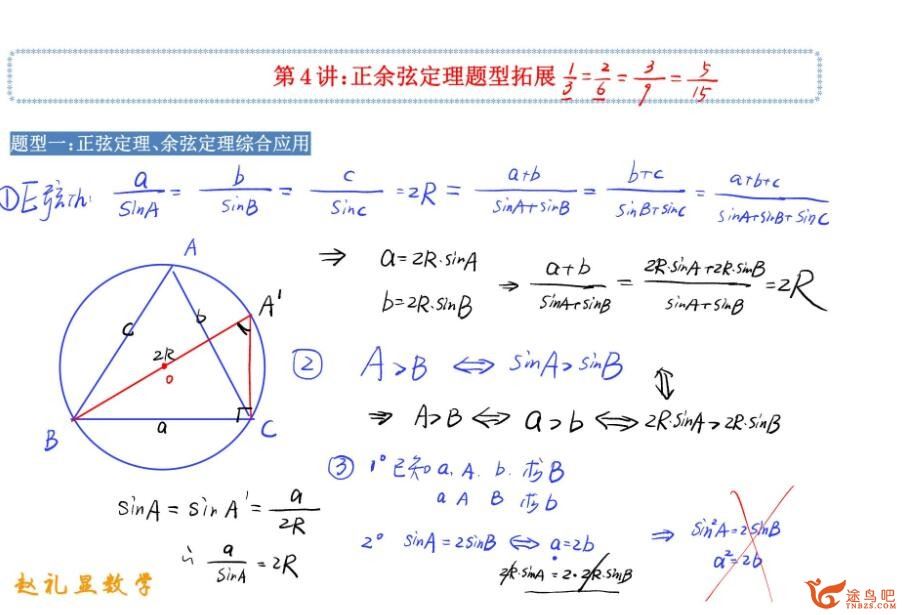 第4讲:正余弦定理题型拓展 1/3 = 2/6 = 3/9 = 5/15
题型一:正弦定理、余弦定理综合应用
①正弦Th: a/sinA = b/sinB = c/sinC = 2R = a+b/sinA+sinB = b+c/sinB+sinC = a+b+c/sinA+sinB+sinC
⇒ a=2R·sinA
b=2R·sinB ⇒ a+b/sinA+sinB = 2R·sinA+2R·sinB/sinA+sinB = 2R
A
A'
c
b
2R
O
B
a
C
② A>B ⇔ sinA>sinB
⇕
⇒ A>B ⇔ a>b ⇔ 2R·sinA>2R·sinB
③ 1° 已知a, A, b, 求B
a A B 求b
sinA = sinA' = a/2R
2° sinA=2sinB ⇔ a=2b ⇒ sin²A=2sinB
2R·sinA=2·2R·sinB
a²=2b
∴ a/sinA = 2R
赵礼显数学
途鸟吧
WWW.TUNIAO8.COM